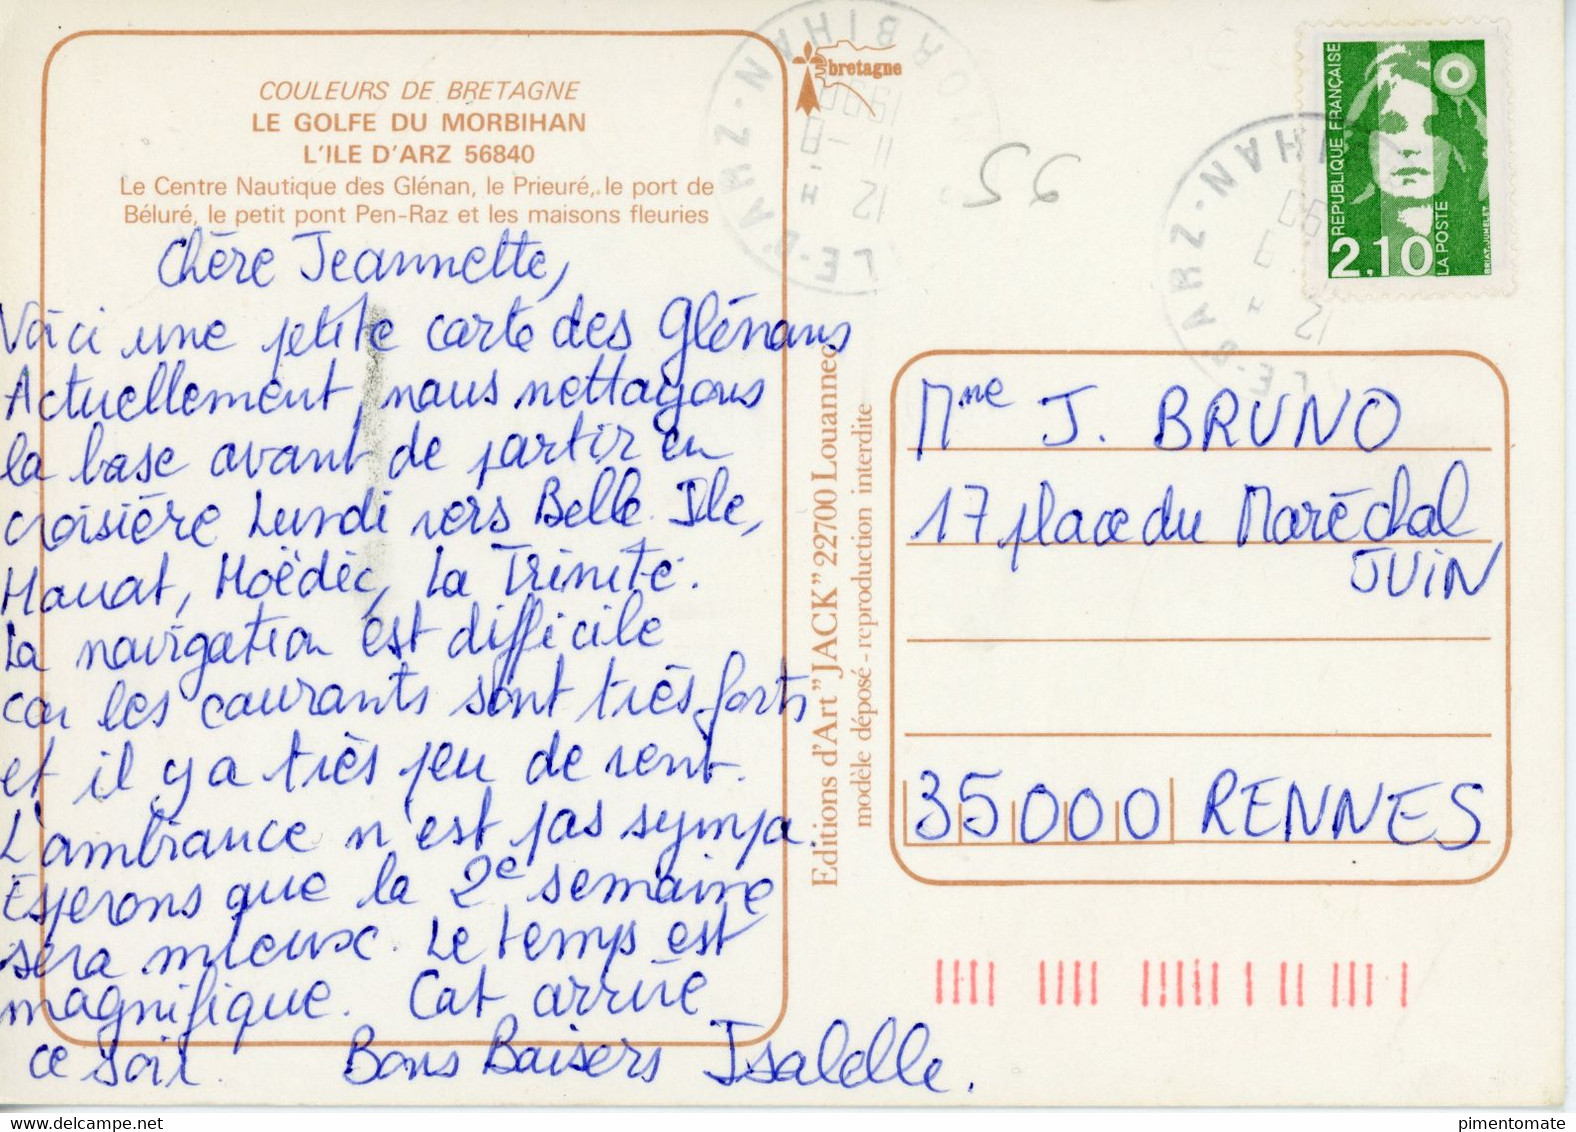 COULEURS DE BRETAGNE
LE GOLFE DU MORBIHAN
L'ILE D'ARZ 56840
Le Centre Nautique des Glénan, le Prieuré, le port de
Béluré, le petit pont Pen-Raz et les maisons fleuries
Chère Jeannette,
Voici une petite carte des Glénans
Actuellement, nous nettoyons
la base avant de partir en
croisière Lundi vers Belle Ile,
Houat, Hoëdic, La Trinité.
La navigation est difficile
car les courants sont très forts
et il y a très peu de vent.
L'ambiance n'est pas sympa.
Espérons que la 2e semaine
sera mieux. Le temps est
magnifique. Cat arrive
ce soir. Bons Baisers Isabelle.
bretagne
Editions d'Art "JACK" 22700 Louannec
modèle déposé - reproduction interdite
LE-D'ARZ-MORBIHAN
12 H
11 -8
1990
25
REPUBLIQUE FRANÇAISE
2,10
LA POSTE
BRIAT-JUMELET
Mme J. BRUNO
17 place du Maréchal
JUIN
35000 RENNES
pimentomate